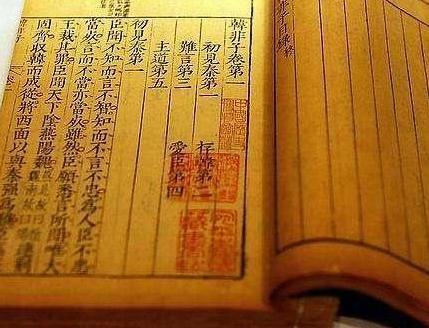 非子目錄終
韓非子卷第一
初見秦第一 存韓第二
難言第三 愛臣第四
主道第五
初見秦第一
臣聞不知而言不智知而不言不忠為人臣不忠
當死言而不當亦當死雖然臣願悉言所聞唯大
王裁其罪臣聞天下陰燕陽魏 連荊
固齊取韓而成從將西面以與秦强為